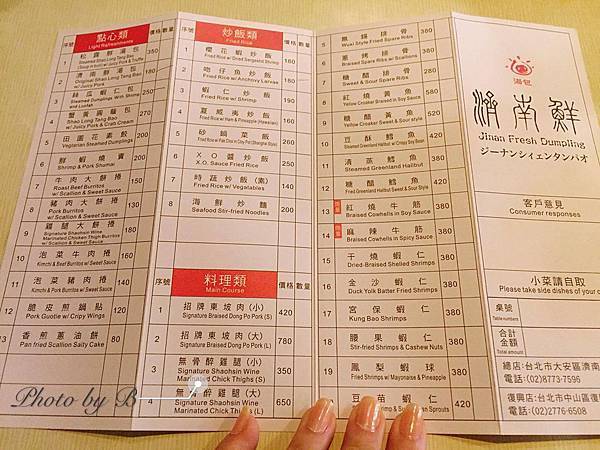 點心類
Light Refreshments
價格 數量
序號
1 松露鮮湯包 350
Steamed Shao Long Tang Bao
(Soup in bun) w/ Juicy Pork & Truffle
2 濟南鮮湯包
Original Shao Long Tang Bao
w/ Juicy Pork
3 絲瓜蝦仁包
Steamed Dumplings With Shrimp
and Loofah
4 蟹黃興龍包
Shao Long Tang Bao
w/ Juicy Pork & Crab Cream
5 田園花素餃
Vegetarian Steamed Dumplings
6 鮮蝦燒賣
Shrimp & Pork Shumai
7 牛肉大餅捲
Roast Beef Burritos
w/ Scallion & Sweet Sauce
8 豬肉大餅捲
Pork Burritos
w/ Scallion & Sweet Sauce
9 雞腿大餅捲
Signature Shaohsin Wine
Marinated Chicken Thigh Burritos
w/ Scallion & Sweet Sauce
10 泡菜牛肉捲
Kimchi & Beef Burritos w/ Sweet Sauce
11 泡菜豬肉捲
Kimchi & Pork Burritos w/ Sweet Sauce
12 脆皮煎鍋貼
Pork Guotie w/ Cripy Wings
13 香煎蔥油餅
Pan fried Scallion Salty Cake
炒飯類
Fried Rice
序號
價格 數量
1 櫻花蝦炒飯
Fried Rice w/ Dried Sergestid Shrimp
2 吻仔魚炒飯
Fried Rice w/ Anchovy Larvae
3 蝦仁炒飯
Fried Rice w/ Shrimp
4 夏威夷炒飯
Fried Rice w/ Ham & Pineapple (Hawaiian)
5 砂鍋菜飯
6 X O 醬炒飯
X.O. Sauce Fried Rice
7 時蔬炒飯(素) 140
Fried Rice w/ Vegetables
8 海鮮炒麵 200
Seafood Stir-fried Noodles
料理類
Main Course
序號
價格 數量
1 招牌東坡肉(小) 420
Signature Braised Dong Po Pork (S)
2 招牌東坡肉(大) 780
Signature Braised Dong Po Pork (L)
3 無骨醉雞腿(小) 350
Signature Shaohsin Wine
Marinated Chick Thighs (S)
4 無骨醉雞腿(大) 650
Signature Shaohsin Wine
Marinated Chick Thighs (L)
5 無錫排骨 380
Wuxi Style Fried Spare Ribs
6 蔥烤排骨 380
Braised Spare Ribs w/ Scallions
7 糖醋排骨 380
Sweet & Sour Spare Ribs
8 紅燒黃魚
Yellow Croaker Braised in Soy Sauce
9 糖醋黃魚
Yellow Croaker Sweet & Sour style
10 豆酥鱈魚 420
Steamed Greenland Halibut w/ Crispy Soy Bean
11 清蒸鱈魚 380
Steamed Greenland Halibut
12 糖醋鱈魚 380
Fried Greenland Halibut Sweet & Sour Style
13 紅燒牛筋 380
Braised Cowheels in Soy Sauce
14 麻辣牛筋 380
Braised Cowheels in Spicy Sauce
15 干燒蝦仁 380
Dried-Braised Shelled Shrimps
16 金沙蝦仁 380
Duck Yolk Batter Fried Shrimps
17 宮保蝦仁 380
Kung Bao Shrimps
18 腰果蝦仁 380
Stir-fried Shrimps & Cashew Nuts
19 鳳梨蝦球 380
Fried Shrimps w/ Mayonnaise & Pineapple
豆苗蝦仁 420
湯包
濟南鮮
Jinan Fresh Dumpling
ジーナンシィェンタンパオ
客戶意見
Consumer responses
小菜請自取
Please take side dishes of your
桌號
Table numbers
合計
金額
Total amount
總店:台北市大安區濟南
電話:(02)8773-7596
復興店:台北市中山區復
電話:(02)2776-6508
Photo by B